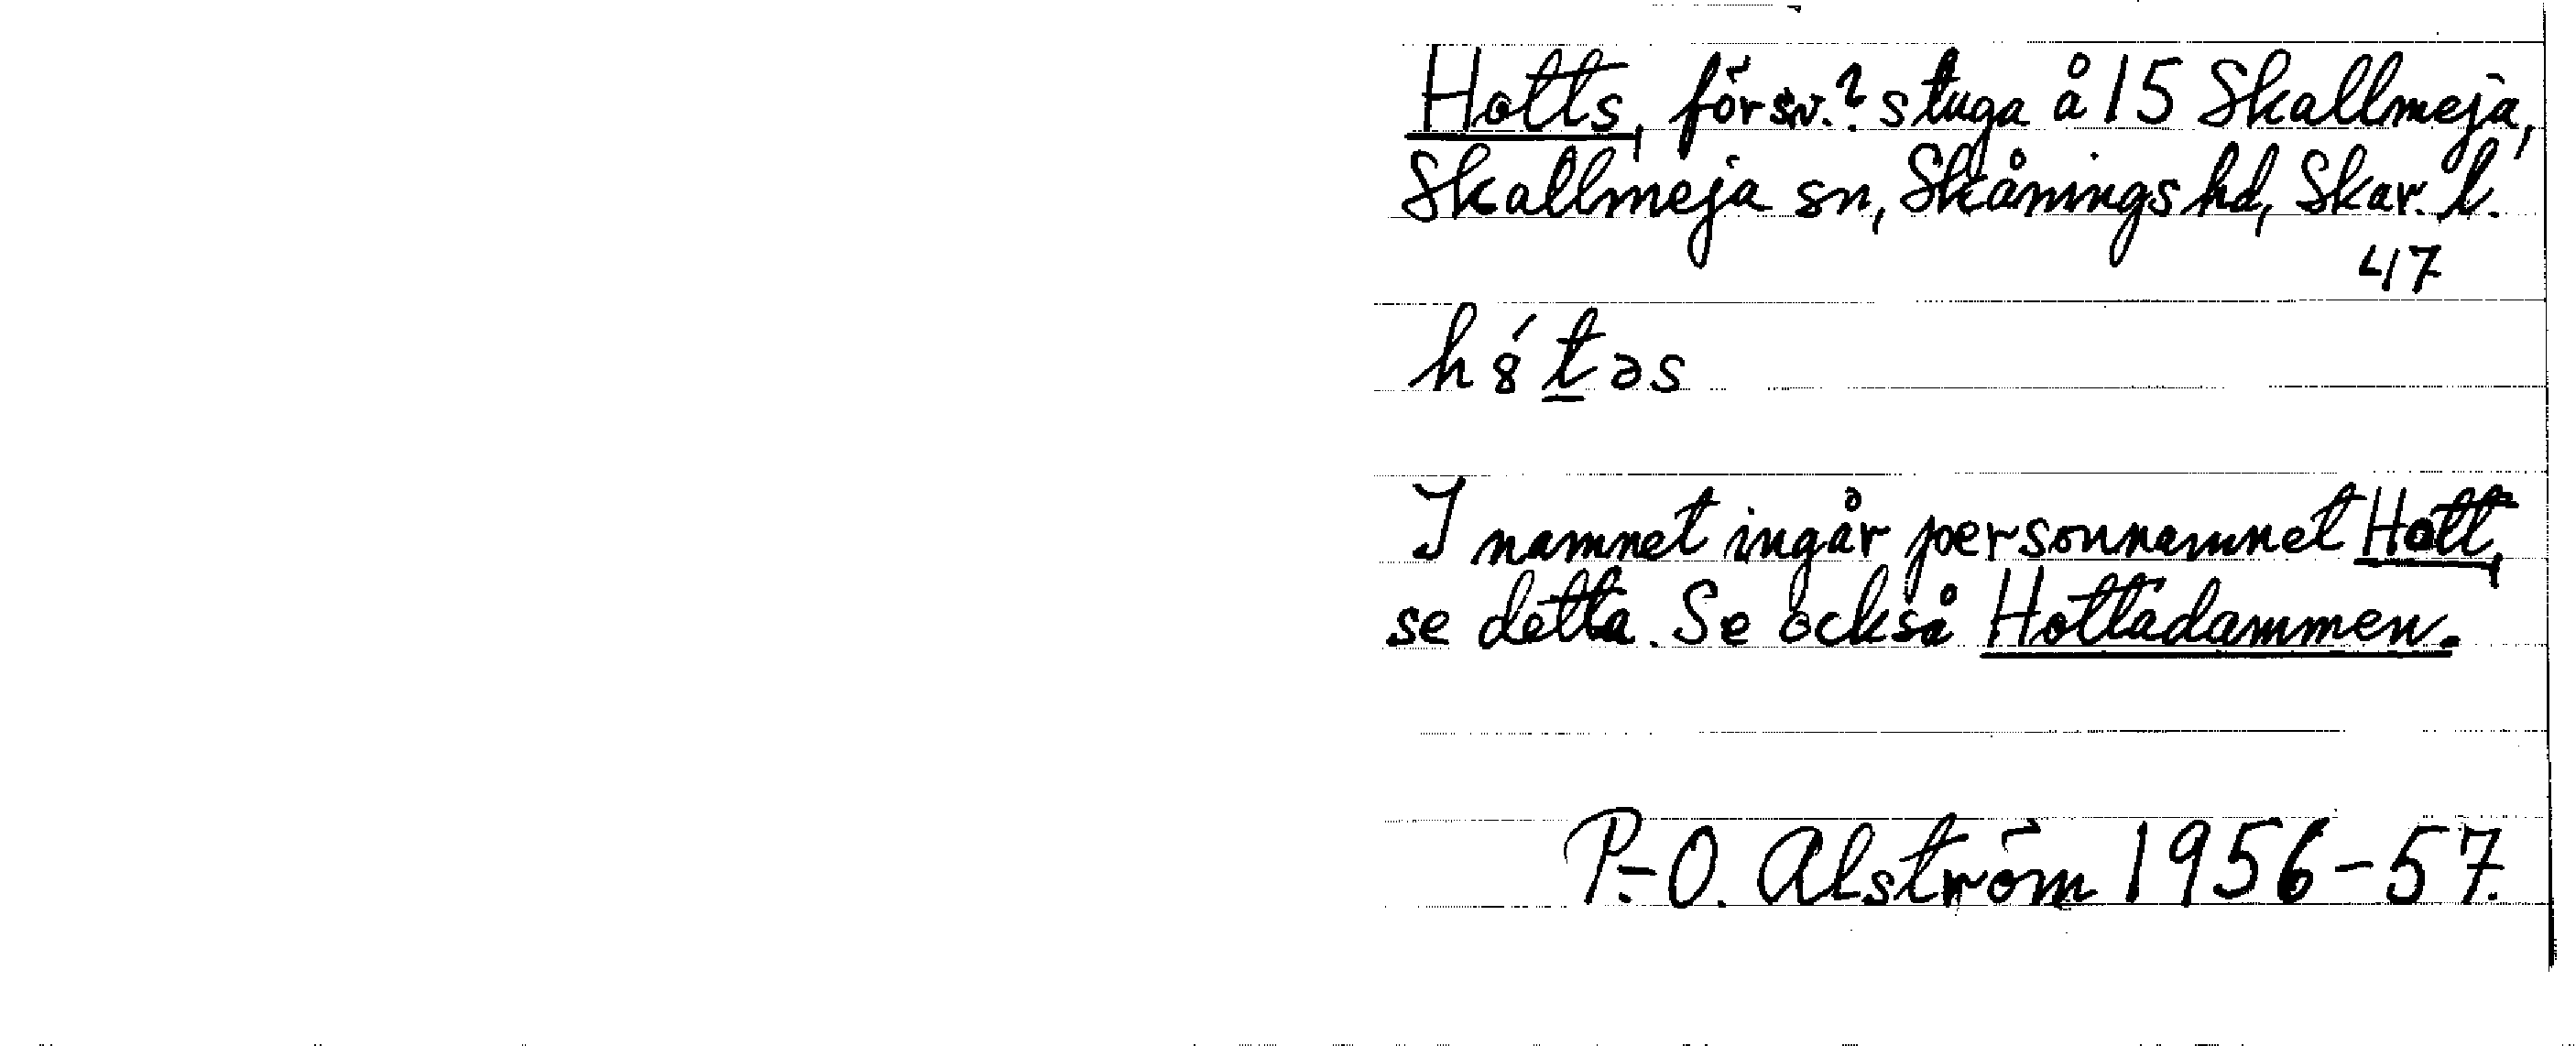 Hotts, försv.? stuga å 15 Skallmeja,
Skallmeja sn, Skånings hd, Skar. l.
47
h8́t̲əs
I namnet ingår personnamnet Hott,
se detta. Se också Hottadammen.
P.-O. Alström 1956-57.